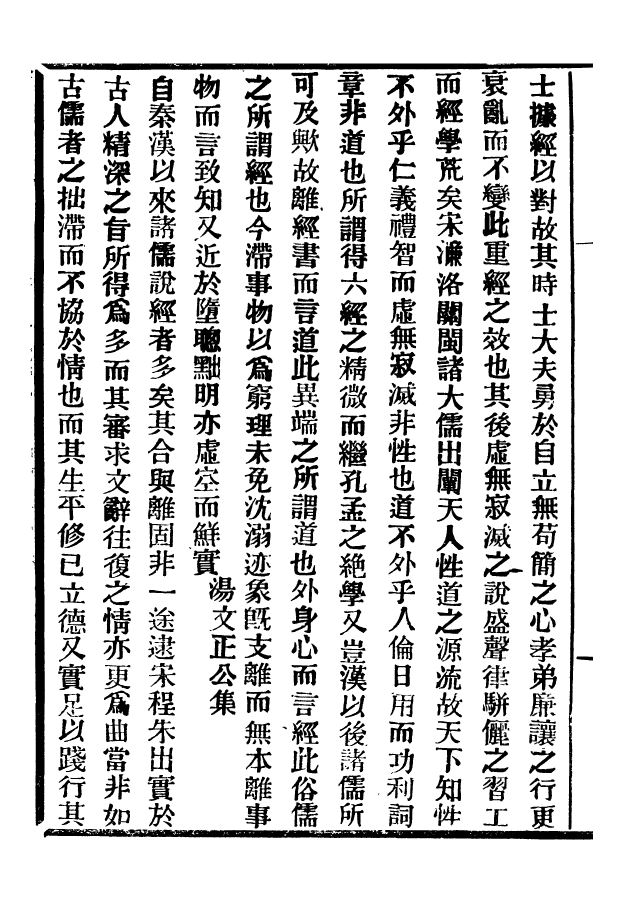 士據經以對故其時士大夫勇於自立無苟簡之心孝弟廉讓之行更
衰亂而不變此重經之效也其後虛無寂滅之說盛聲律駢儷之習工
而經學荒矣宋濂洛關閩諸大儒出闡天人性道之源流故天下知性
不外乎仁義禮智而虛無寂滅非性也道不外乎人倫日用而功利詞
章非道也所謂得六經之精微而繼孔孟之絕學又豈漢以後諸儒所
可及歟故離經書而言道此異端之所謂道也外身心而言經此俗儒
之所謂經也今滯事物以爲窮理未免沈溺迹象旣支離而無本離事
物而言致知又近於墮聰黜明亦虛空而鮮實湯文正公集
自秦漢以來諸儒說經者多矣其合與離固非一途逮宋程朱出實於
古人精深之旨所得爲多而其審求文辭往復之情亦更爲曲當非如
古儒者之拙滯而不協於情也而其生平修已立德又實足以踐行其